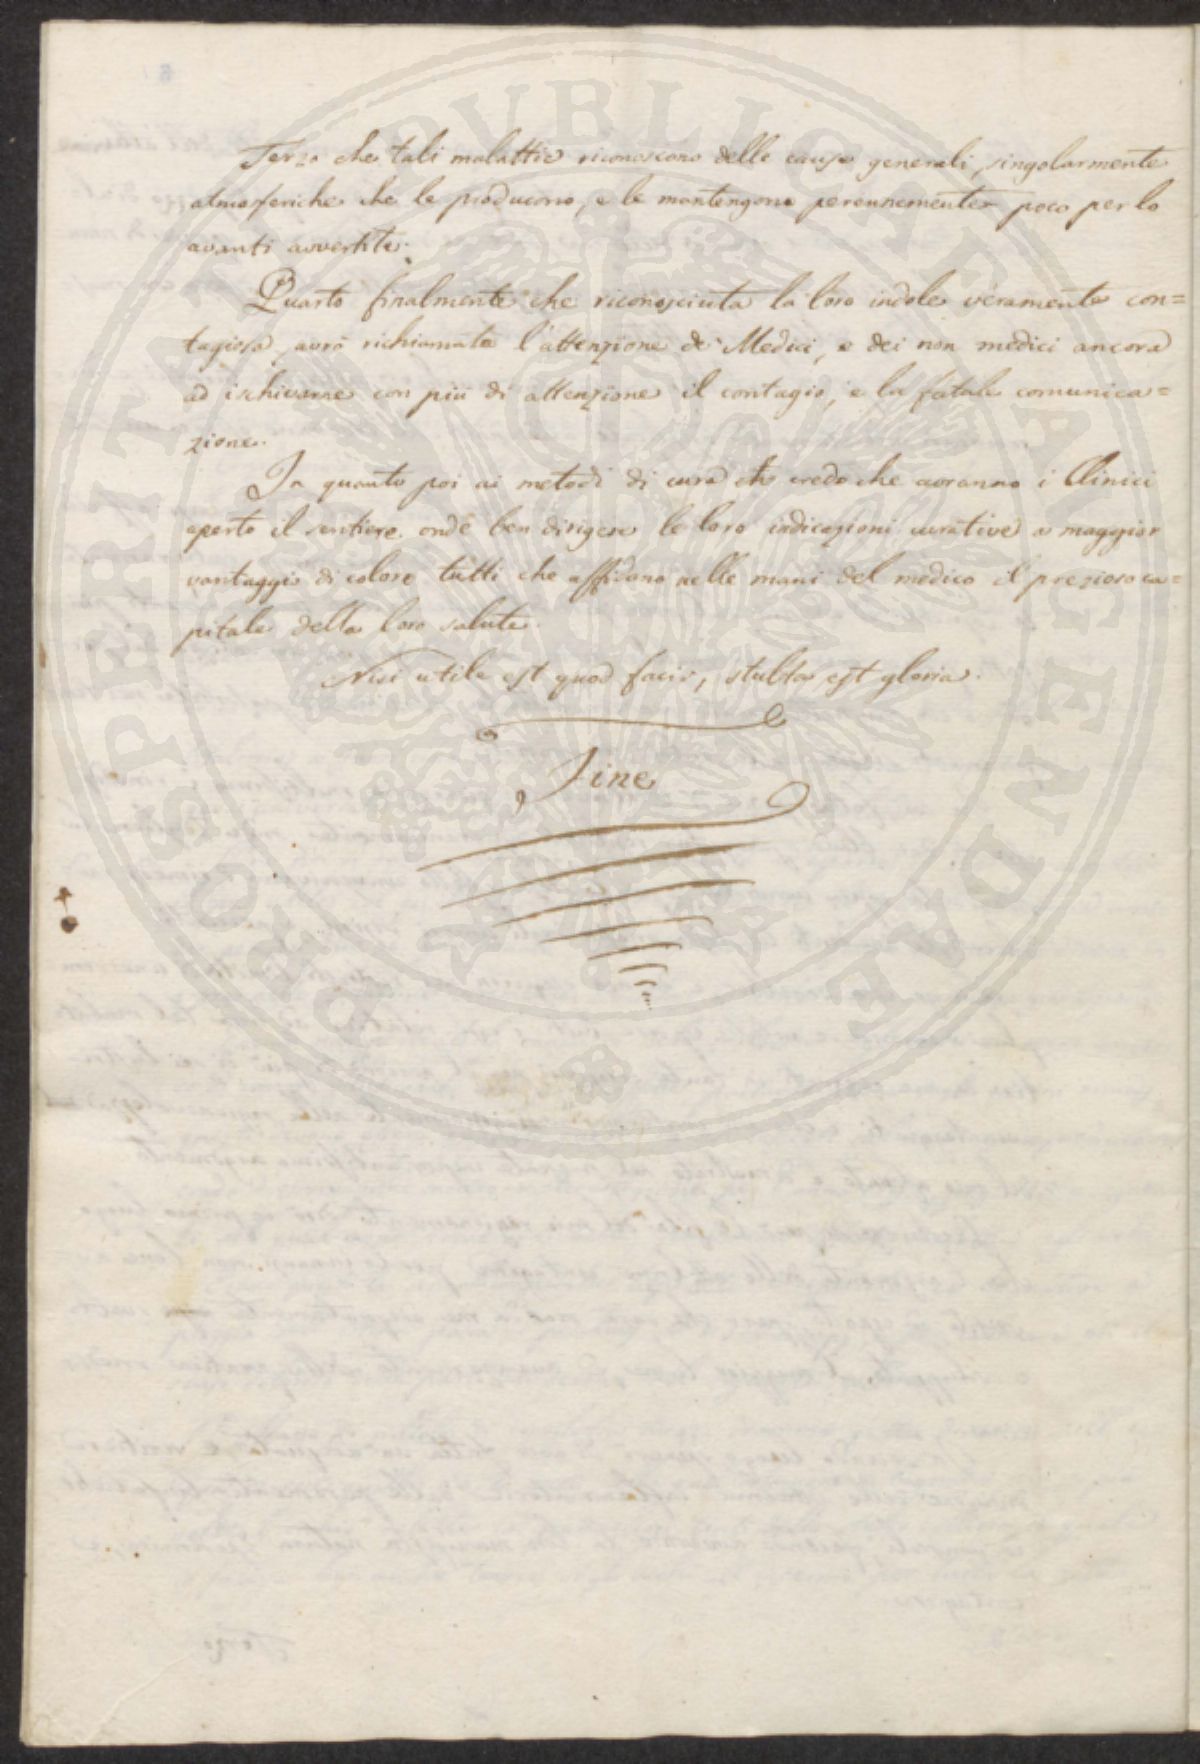 Terzo che tali malattie riconoscono delle cause generali, singolarmente
atmosferiche che le producono, e le mantengono perennemente poco per lo
avanti avvertite.
Quarto finalmente che riconosciuta la loro indole veramente con=
tagiosa avrà richiamata l'attenzione de' Medici, e dei non medici ancora
ad ischivarne con più di attenzione il contagio, e la fatale comunica=
zione.
In quanto poi ai metodi di cura credo che avranno i Clinici
aperto il sentiero onde ben dirigere le loro indicazioni curative a maggior
vantaggio di coloro tutti che affidano nelle mani del medico il prezioso ca=
pitale della loro salute.
Nisi utile est quod facis, stulta est gloria.
Fine
PROSPERITATI PUBLICAE AUGENDAE